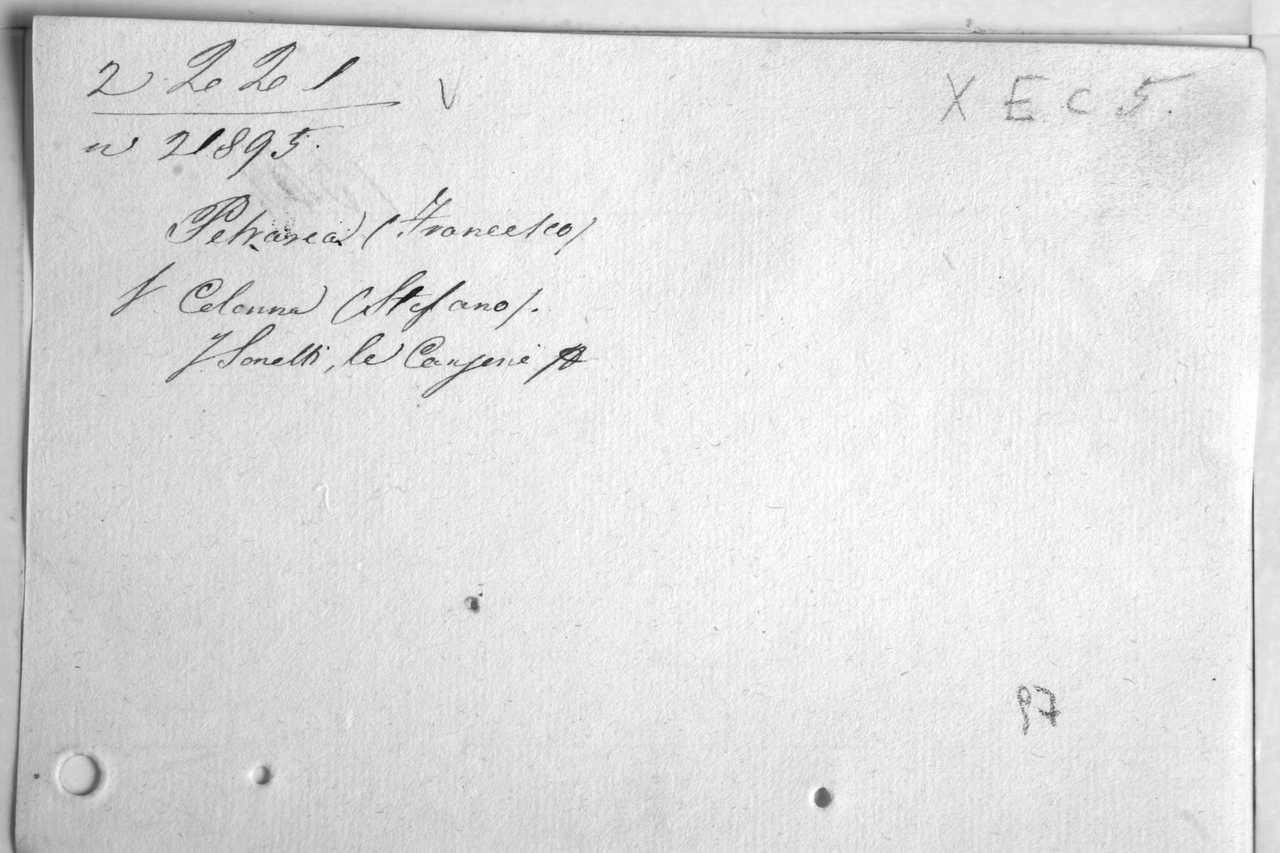 2 2e 2e 1 V X E C 5.
n 21895.
Petrarca (Francesco)
f Colonna (Stefano).
I Sonetti, le Canzoni
97